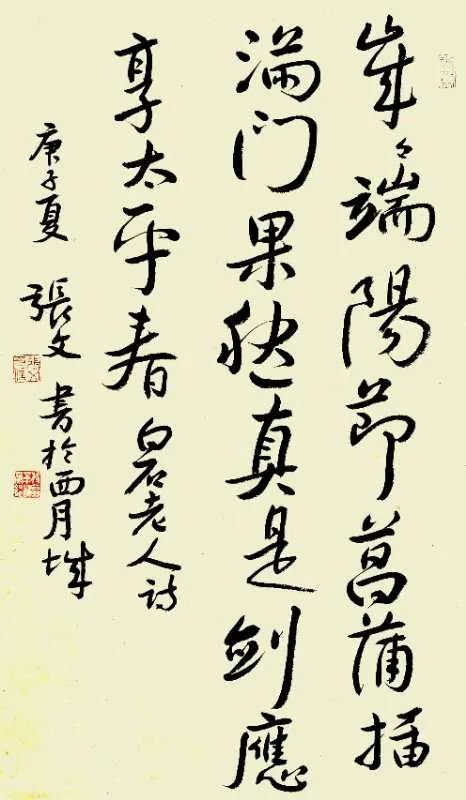 歲々端陽節菖蒲插
滿門果能真是劍應
享太平春 白石老人詩
庚子夏 張文 書於西月城